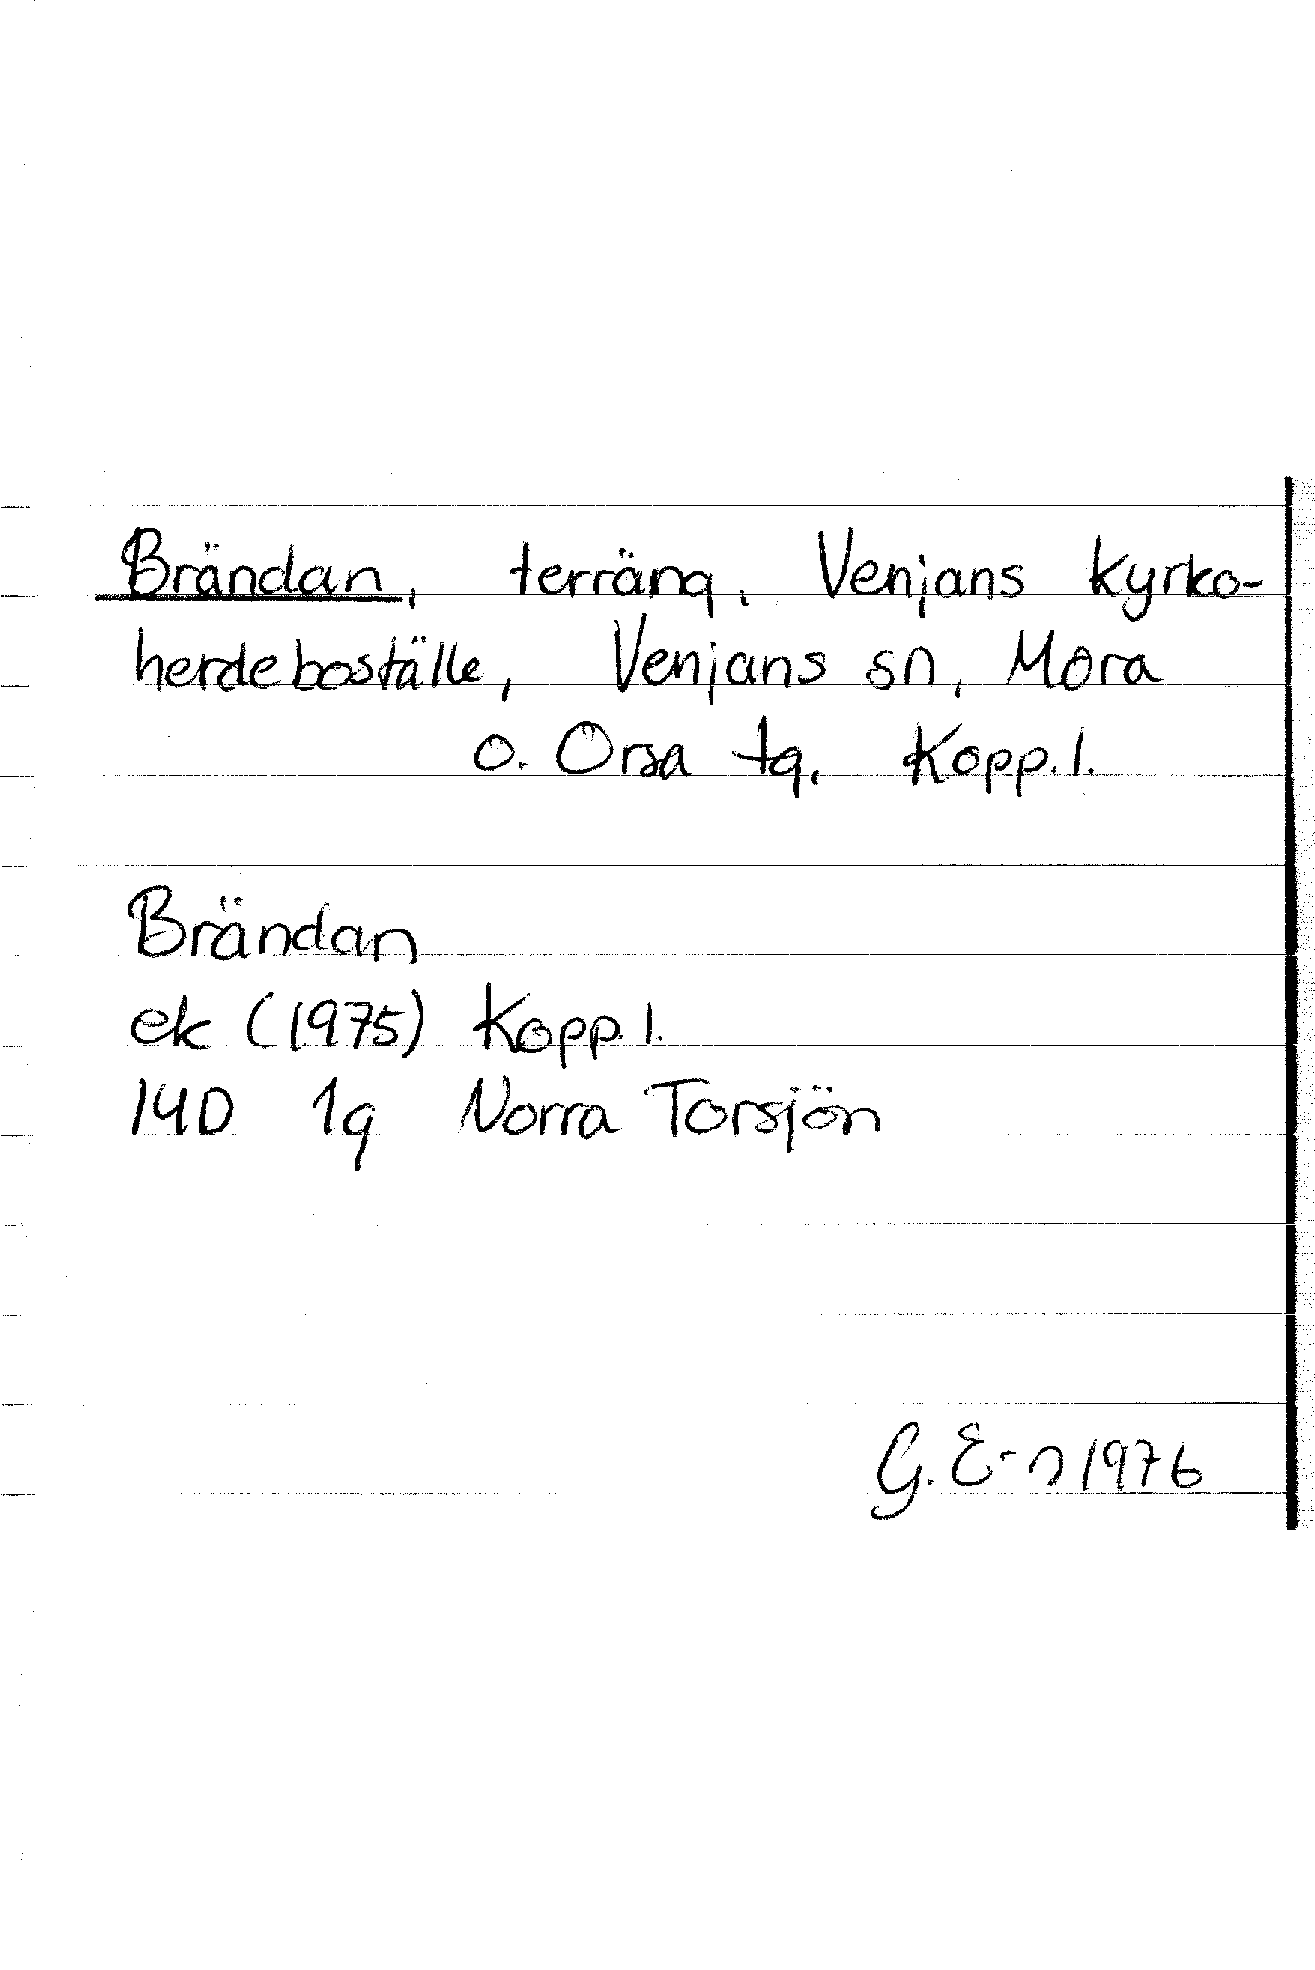 Brändan, terräng, Venjans kyrko-
herdeboställe, Venjans sn, Mora
o. Orsa tg, Kopp. l.
Brändan
ek (1975) Kopp. l.
14D 1g Norra Torsjön
G. E-n 1976